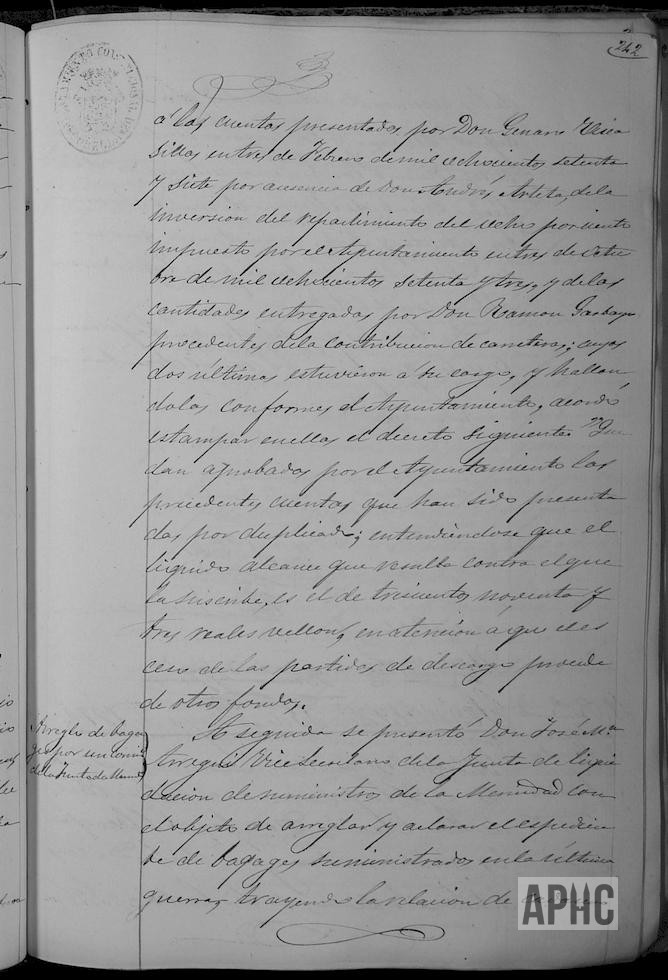 242
á las cuentas presentadas por Don Genaro
sillas en tres de Febrero de mil ochocientos setenta
y siete por ausencia de Don Andrés Arteta, de la
inversion del repartimiento del ocho por ciento
impuesto por el Ayuntamiento en tres de Octu
bre de mil ochocientos setenta y tres, y de las
cantidades entregadas por Don Ramon Garbayo
procedentes de la contribucion de carreteras; cuyos
dos últimas estuvieron á su cargo, y hallan
dolas conformes el Ayuntamiento, acordó
estampar en ellas el decreto siguiente. "Que
dan aprobadas por el Ayuntamiento las
precedentes cuentas que han sido presenta
das por duplicado; entendiéndose que el
líquido alcance que resulta contra el que
la suscribe, es el de trescientos noventa y
tres reales vellon, en atención á que el es
ceso de las partidas de descargo procede
de otros fondos.
Arreglo de baga
ges por un comis
de la Junta de Mem
A seguida se presentó Don José Mª
Arregui Vice Secretario de la Junta de liqui
dacion de suministros de la Merindad con
el objeto de arreglar y aclarar el espedien
te de bagages suministrados en la última
guerra, trayendo la relacion de
APHC